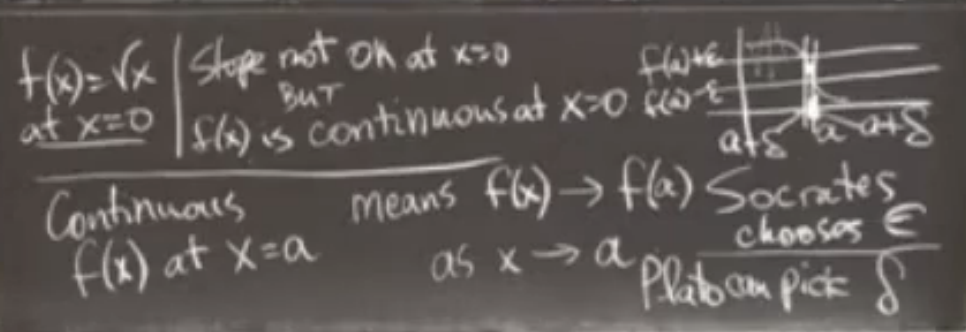 f(x)=√x
at x=0
Slope not OK at x=0
BUT
f(x) is continuous at x=0
f(a)+ε
f(a)-ε
a+δ a a+δ
Continuous means f(x) → f(a)
f(x) at x=a as x → a
Socrates
chooses ε
Plato can pick δ